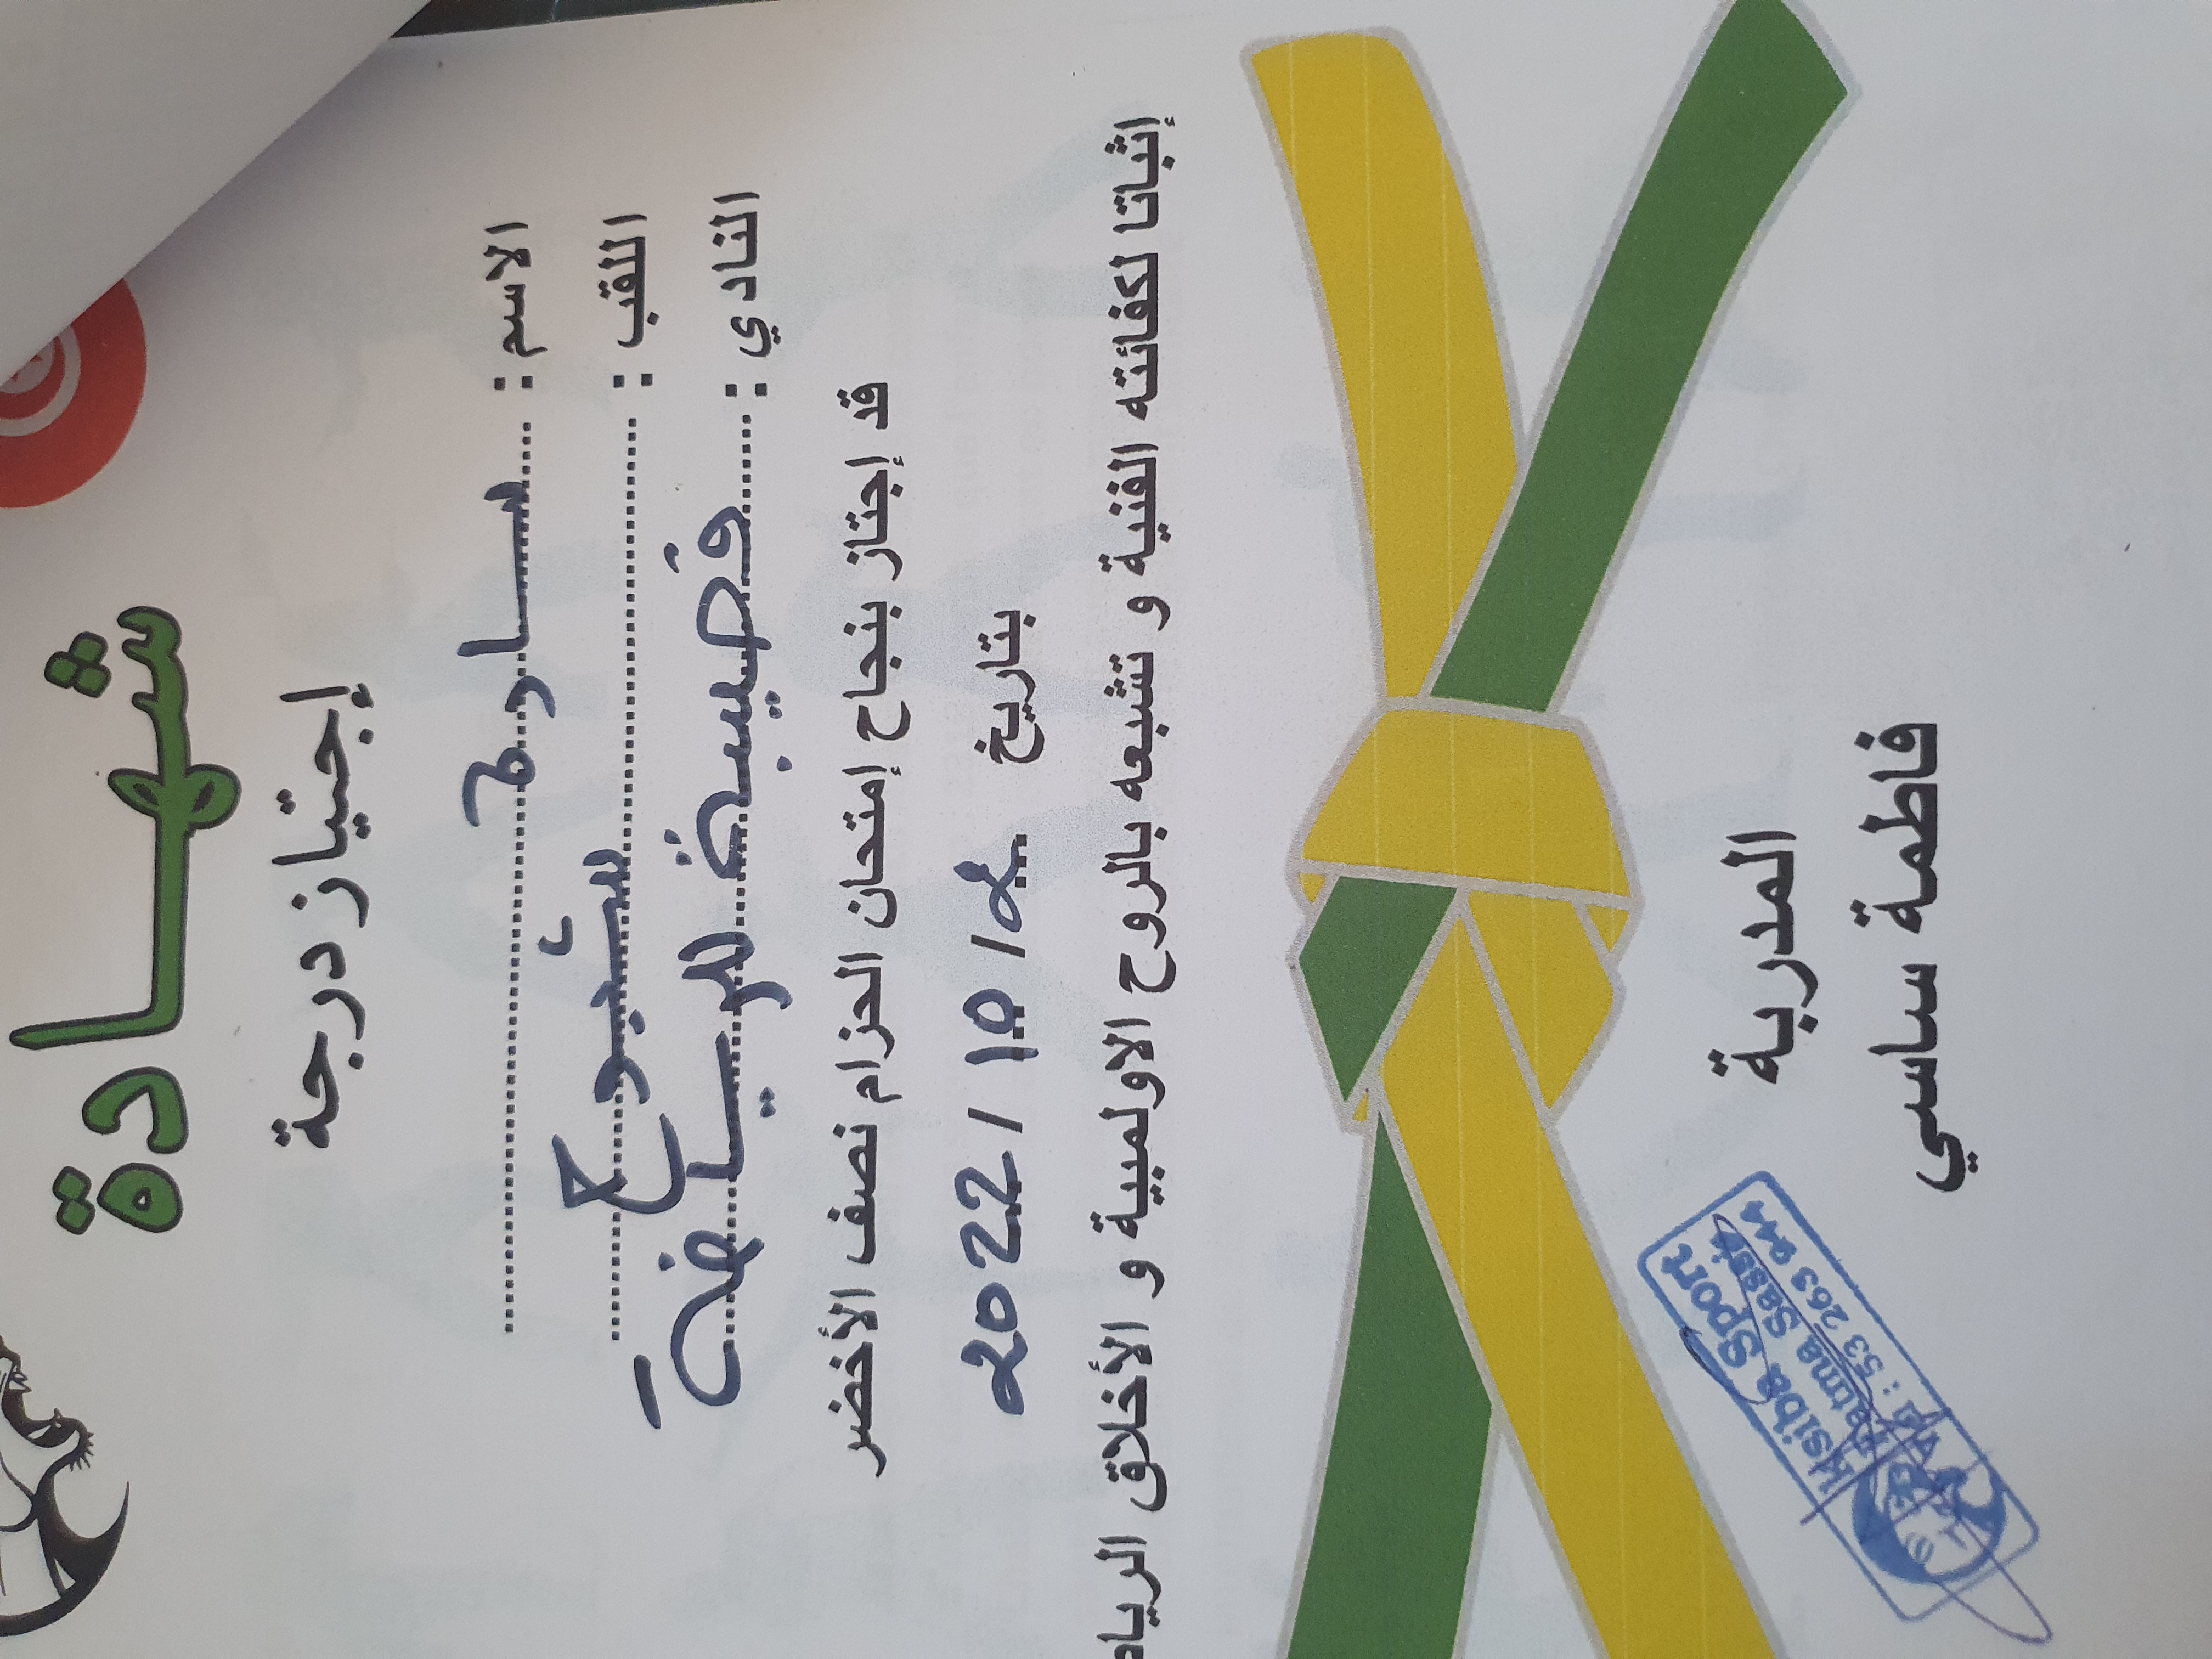 شهادة
إجتياز درجة
الاسم : سارة
اللقب : شبوح
النادي : قصيبة للرياضة
قد إجتاز بنجاح إمتحان الحزام نصف الأخضر
بتاريخ 2 / 10 / 2022
إثباتا لكفائته الفنية و تشبعه بالروح الاولمبية و الأخلاق
المدربة
فاطمة ساسي
Ksiba Sport
Fatma Sassi
53 263